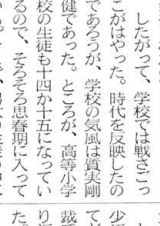 したがって、学校では戦さごっ
こがはやった。時代を反映したの
であろうが、学校の気風は質実剛
健であった。ところが、高等小学
校の生徒も十四か十五になってい
るので、そろそろ思春期に入って